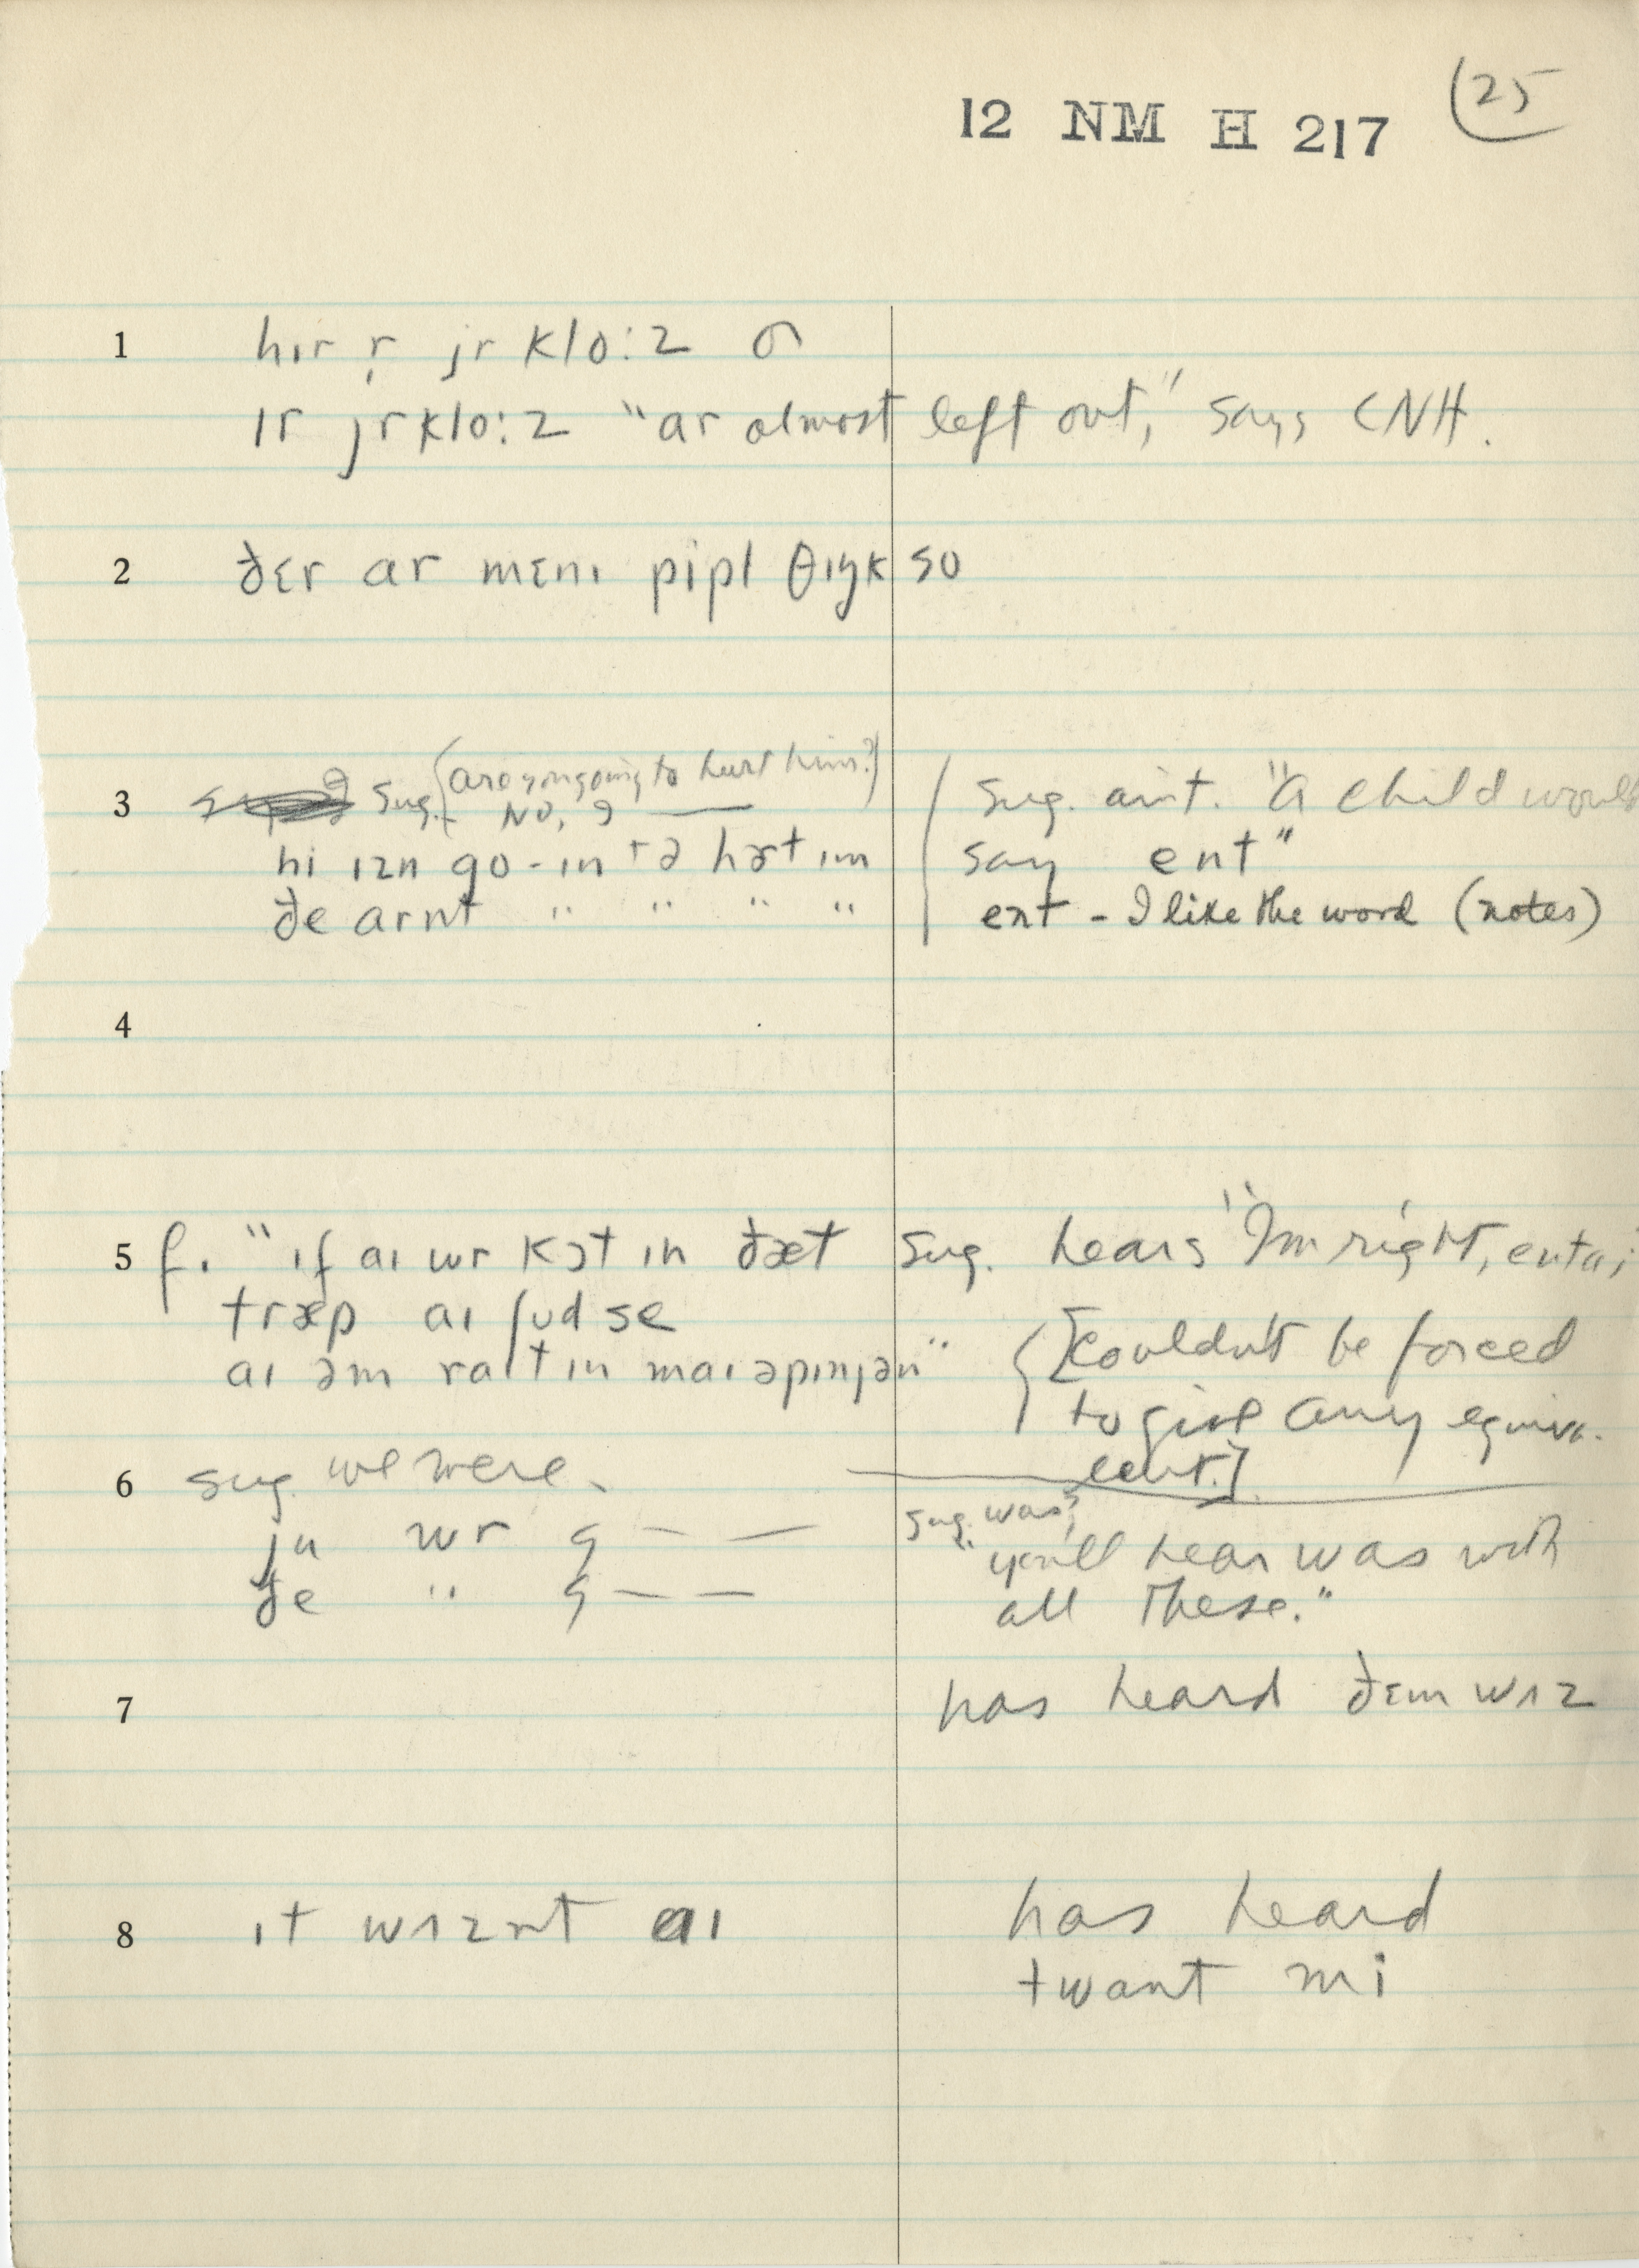 12 NM H 217 (25
1 hɪr r̩ jr klo:z
ɪr jr klo:z "ar almost left out," says CNH.
2 ðɛr ar mɛnɪ pipl θɪŋk so
3 sug. (are you going to hurt him?)
No, 9 —
hi ɪzn go-ɪn tə hɚt ɪm
ðe arnt " " " "
sug. ain't. "A child would
say ent"
ent - I like the word (notes)
4
5 f. "ɪf aɪ wr kɔt ɪn ðæt
træp aɪ ʃud se
aɪ əm raɪt ɪn maɪ əpɪnjən"
sug. hears "I'm right, entaɪ
[couldn't be forced
to give any equiva-
lent.]
6 sug. we were.
ju wr 9 — —
ðe " 9 — —
sug. was;
"you'll hear was with
all these."
7 has heard ðɛm wʌz
8 ɪt wʌznt aɪ
has heard
twant mi